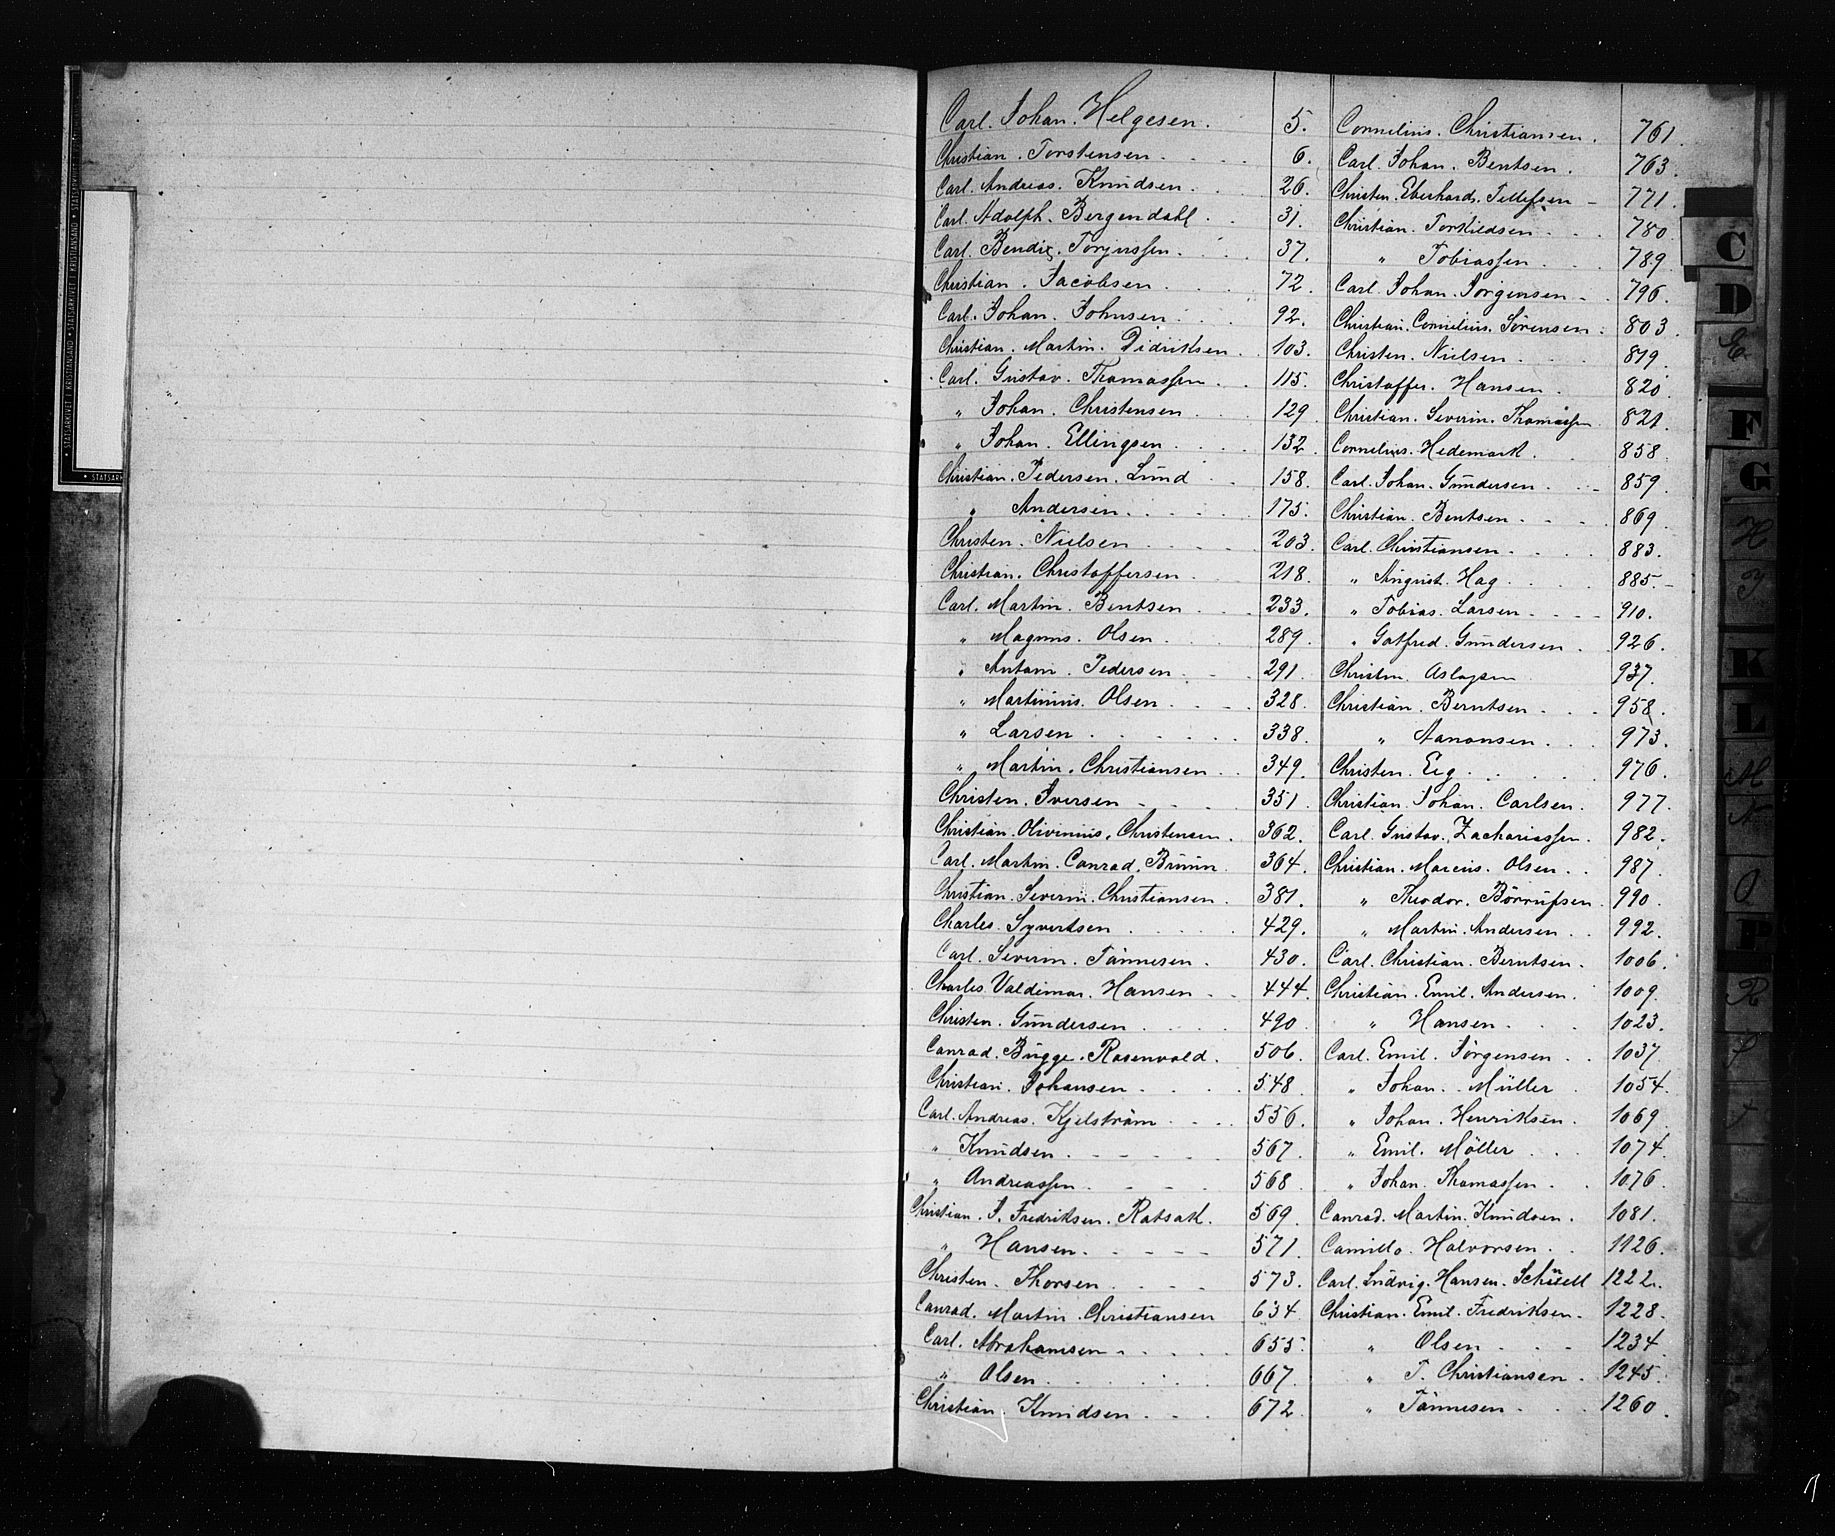 Carl. Johan. Helgesen. 5.
Christian. Torstensen. 6.
Carl. Andreas. Knudsen. 26.
Carl. Adolph. Bergendahl. 31.
Carl. Bendix. Torjussen. 37.
Christian. Jacobsen. 72.
Carl. Johan. Johnsen. 92.
Christian. Martin. Didriksen. 103.
Carl. Gustav. Thomassen. 115.
" Johan. Christensen. 129
" Johan. Ellingsen. 132
Christian. Pedersen. Lund 158.
" Andersen. 175.
Christen. Nielsen. 203.
Christian. Christoffersen. 218.
Carl. Martin. Bentsen. 233.
" Magnus. Olsen. 289.
" Antoni. Pedersen. 291.
" Martinius. Olsen. 328.
" Larsen. 338.
" Martin. Christiansen. 349.
Christen. Iversen. 351.
Christian. Olivinius. Christensen. 362.
Carl. Martin. Conrad. Bruun. 364.
Christian. Severin. Christiansen. 381.
Charles. Syvertsen. 429.
Carl. Severin. Tønnesen. 430.
Charles. Valdimar. Hansen. 444.
Christen. Gundersen. 490
Conrad. Bugge. Rosenvold. 506.
Christian. Johansen. 548
Carl. Andreas. Kjelstrøm. 556.
" Knudsen. 567.
" Andreassen. 568
Christian. J. Fredriksen. Ratsak. 569.
" Hansen. 571.
Christen. Thorsen. 573.
Conrad. Martin. Christiansen 634
Carl. Abrahamsen. 655.
" Olsen. 667.
Christian. Knudsen. 672.
Cornelius. Christiansen. 761.
Carl. Johan. Bentsen. 763.
Christen. Eberhard. Tellefsen 771.
Christian. Torkildsen. 780.
" Tobiassen. 789.
Carl. Johan. Jørgensen. 796.
Christian. Cornelius. Sørensen. 803.
Christen. Nielsen. 819.
Christoffer. Hansen. 820
Christian. Severin. Thomassen 821.
Cornelius. Hedemark. 858.
Carl. Johan. Gundersen. 859.
Christian. Bentsen. 869.
Carl. Christiansen. 883.
" August. Hag. 885.
" Tobias. Larsen. 910.
" Gotfred. Gundersen. 926.
Christen Aslagsen 937.
Christian. Berntsen. 958.
" Aanonsen. 973.
Christen. Eeg. 976.
Christian. Johan. Carlsen. 977.
Carl. Gustav. Zachariassen. 982.
Christian. Marcus. Olsen. 987.
" Theodor. Børrufsen. 990.
" Martin. Andersen. 992.
Carl. Christian. Berntsen. 1006.
Christian. Emil. Andersen. 1009.
" Hansen. 1023.
Carl. Emil. Jørgensen. 1037.
" Johan. Müller. 1054.
" Johan. Henriksen. 1069.
" Emil. Møller. 1074.
" Johan. Thomassen. 1076.
Conrad. Martin. Knudsen. 1081.
Camillo. Halvorsen. 1126.
Carl. Ludvig. Hansen. Schuell 1222.
Christian. Emil. Fredriksen. 1228.
" Olsen. 1234.
" T. Christiansen. 1245.
" Tønnesen. 1260.
C
D
E
F
G
H
K
L
M
N
O
P
R
STATSARKIVET I KRISTIANSAND